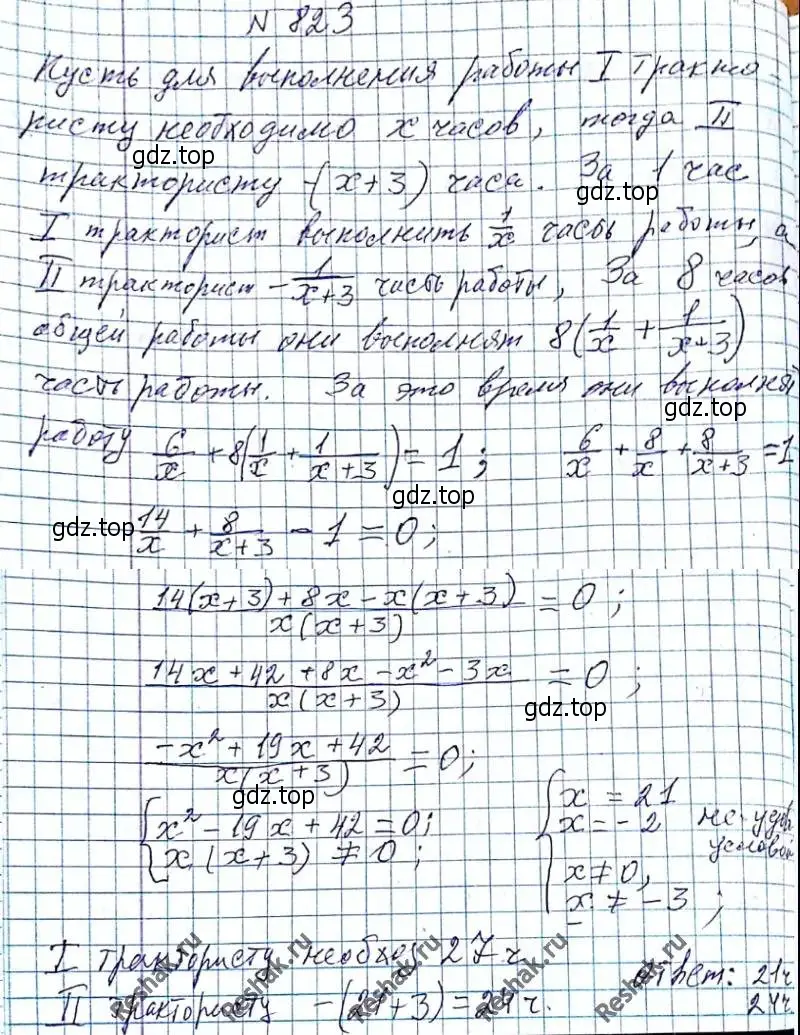 N 823
Пусть для выполнения работы I тракто-
ристу необходимо x часов, тогда II
gdz.top
трактористу -(x+3) часа. За 1 час
I тракторист выполнить 1/x часть работы, а
II тракторист - 1/(x+3) часть работы, За 8 часов
общей работы они выполнят 8(1/x + 1/(x+3))
gdz.top
часть работы. За это время они выполнят
работу 6/x + 8(1/x + 1/(x+3)) = 1; 6/x + 8/x + 8/(x+3) = 1
gdz.top
gdz.top
14/x + 8/(x+3) - 1 = 0;
(14(x+3)+8x-x(x+3))/(x(x+3)) = 0;
(14x+42+8x-x²-3x)/(x(x+3)) = 0;
gdz.top
(-x²+19x+42)/(x(x+3)) = 0;
gdz.top
{x²-19x+42=0;
x(x+3)≠0;
{x=21
x=-2 не удов
условой
x≠0,
x≠-3;
I трактористу необход 27 ч
II трактористу -(21+3)=24 ч.
Ответ: 21ч
24ч.
Reshak.ru
Reshak.ru
Reshak.ru
Reshak.ru